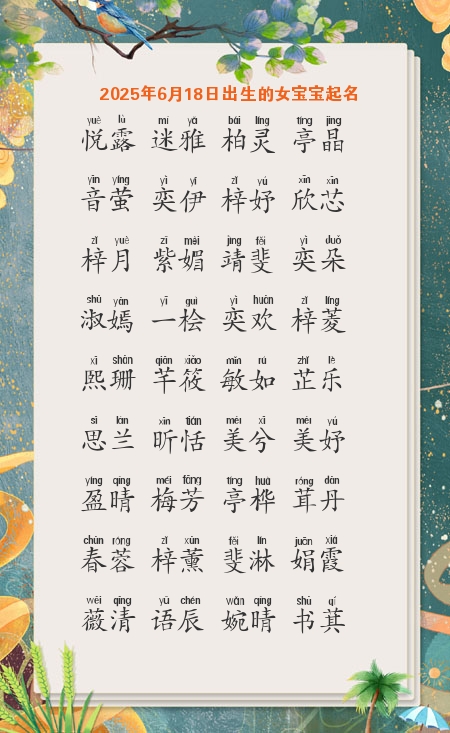 2025年6月18日出生的女宝宝起名
yuè lù mí yǎ bǎi líng tíng jīng
悦露 迷雅 柏灵 亭晶
yīn yíng yì yī zǐ yú xīn xīn
音萤 奕伊 梓妤 欣芯
zǐ yuè zǐ mèi jìng fěi yì duǒ
梓月 紫媚 靖斐 奕朵
shū yān yī guì yì huān zǐ líng
淑嫣 一桧 奕欢 梓菱
xī shān qiān xiǎo mǐn rú zhǐ lè
熙珊 芊筱 敏如 芷乐
sī lán xīn tián měi xī měi yú
思兰 昕恬 美兮 美妤
yíng qíng méi fāng tíng huà róng dān
盈晴 梅芳 亭桦 茸丹
chūn róng zǐ xūn fěi lín juān xiá
春蓉 梓薰 斐淋 娟霞
wēi qīng yǔ chén wǎn qíng shū qí
薇清 语辰 婉晴 书萁